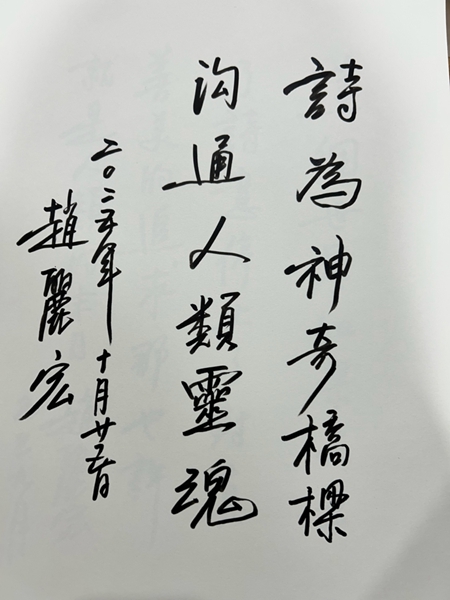 詩為神奇橋樑
沟通人類靈魂
二〇二五年十月廿五日
趙麗宏